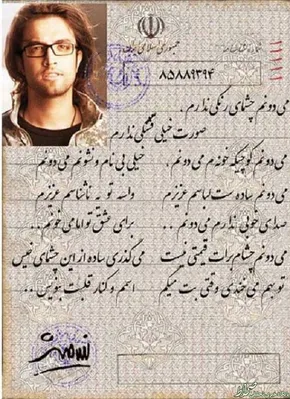 جمهوری اسلامی ایران
۸۵۸۸۹۳۹۴
می دونم چشای رنگی ندارم .
صورت خیلی قشنگی ندارم
می دونم کوچیکه خونم می دونم . خیلی بی نام و نشونم می دونم
می دونم ساده ست لباسم عزیزم واسه تو یه ناشناسم عزیزم
صدای خوبی ندارم می دونم .. برای عشق تو اما می خونم ..
می دونم چشام برات قیمتی نیست می گذری ساده از این چشمای خیس
تو بهم می خندی وقتی بت میگم اسمم و کنار قلبت بنویس ..